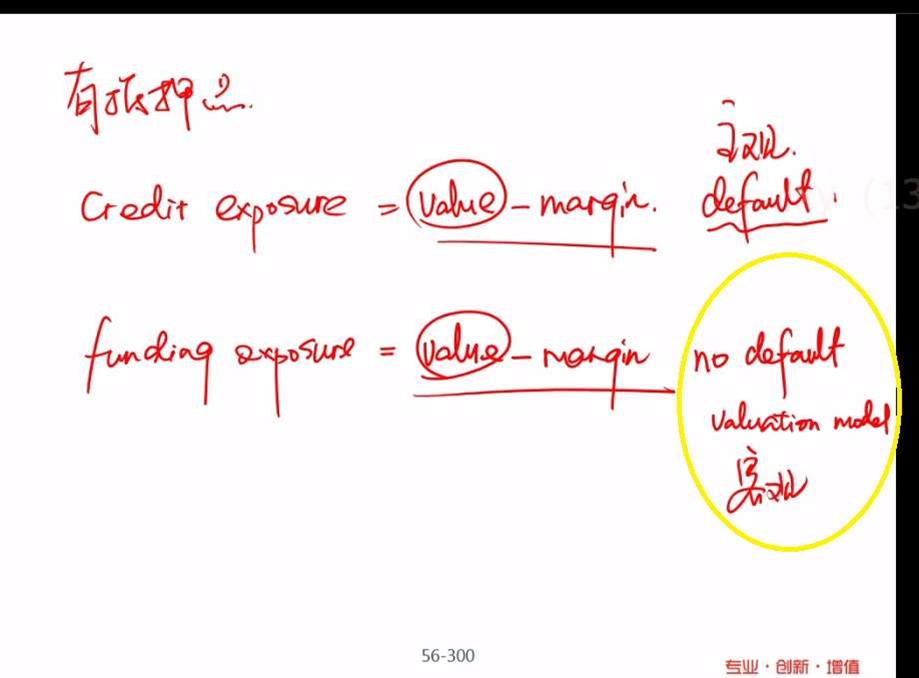 有抵押品.
主观.
Credit exposure = value - margin. default.
(13
funding exposure = value - margin no default
valuation model
客观
56-300
专业·创新·增值